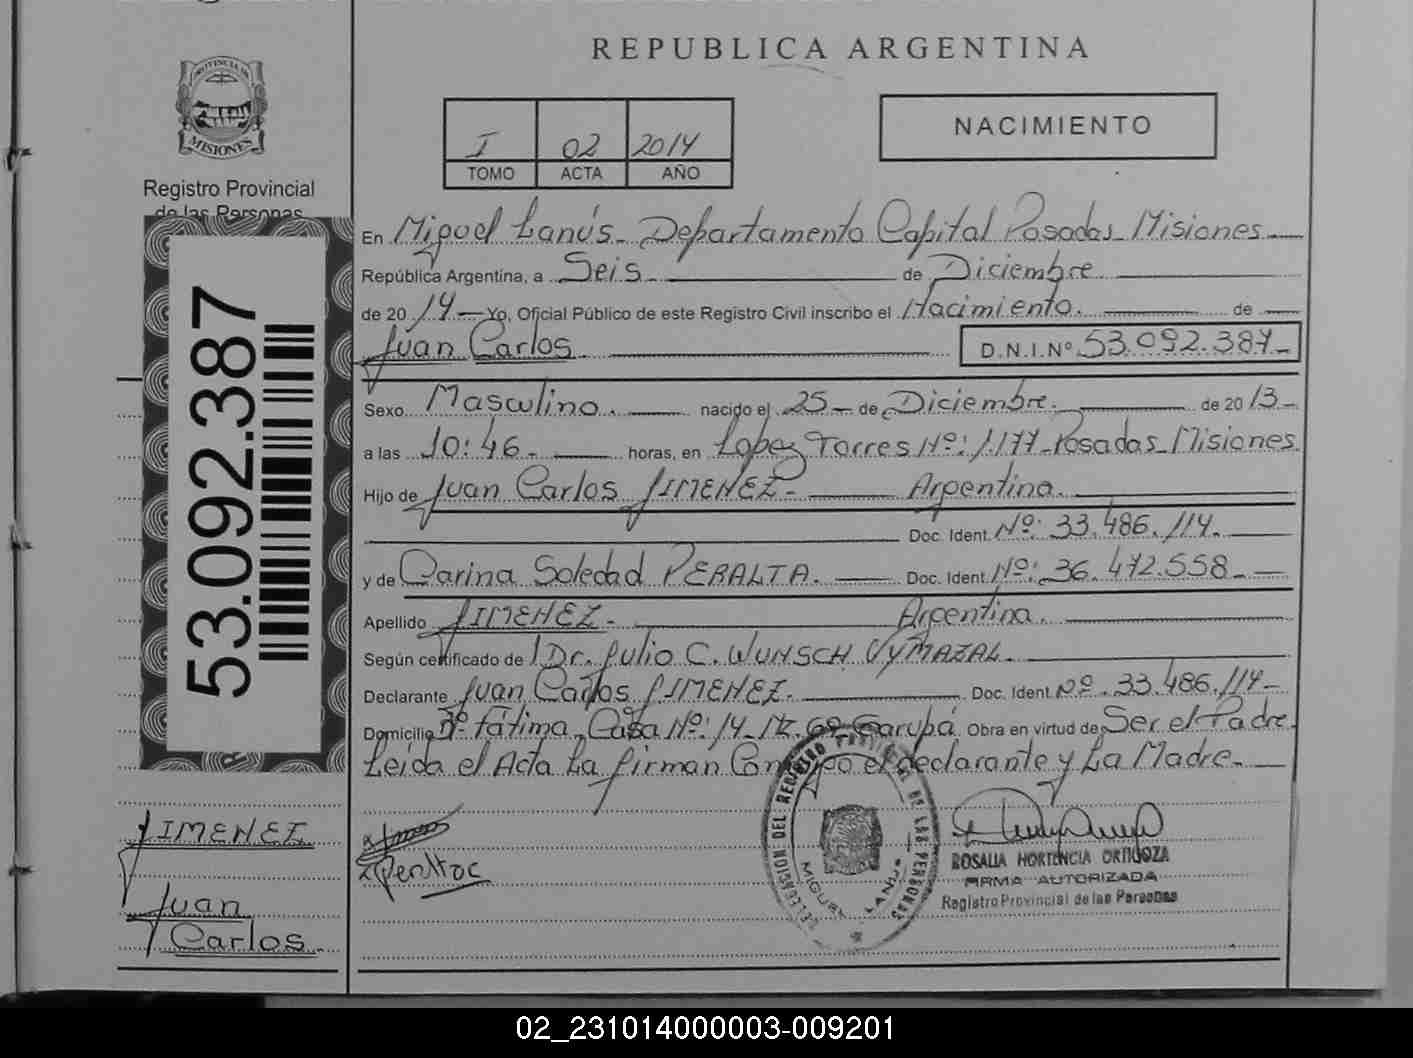 REPUBLICA ARGENTINA
PROVINCIA DE
MISIONES
Registro Provincial
de las Personas
I 02 2014
TOMO ACTA AÑO
NACIMIENTO
53.092.387
En Miguel Lanús - Departamento Capital Posadas - Misiones -
República Argentina, a Seis - de Diciembre
de 20 14 - Yo, Oficial Público de este Registro Civil inscribo el Nacimiento. de
Juan Carlos D.N.I.Nº 53.092.387 -
Sexo Masculino. nacido el 25 - de Diciembre. de 20 13 -
a las 10:46 - horas, en Lopez Torres Nº: 1.177 - Posadas - Misiones.
Hijo de Juan Carlos JIMENEZ - Argentina.
Doc. Ident. Nº: 33.486.114.
y de Carina Soledad PERALTA. Doc. Ident. Nº: 36.472.558 -
Apellido JIMENEZ - Argentina.
Según certificado de Dr. Julio C. WUNSCH VYMAZAL.
Declarante Juan Carlos JIMENEZ. Doc. Ident. Nº. 33.486.114 -
Domicilio Fátima, Casa Nº: 14 - Garupá Obra en virtud de Ser el Padre.
Leída el Acta La firman Conmigo el declarante y La Madre. -
JIMENEZ
Juan
Carlos
Peralta C
DELEGACION DEL REGISTRO PROVINCIAL DE LAS PERSONAS
MIGUEL LANUS
ROSALIA HORTENCIA ORTIGOZA
FIRMA AUTORIZADA
Registro Provincial de las Personas
02_231014000003-009201